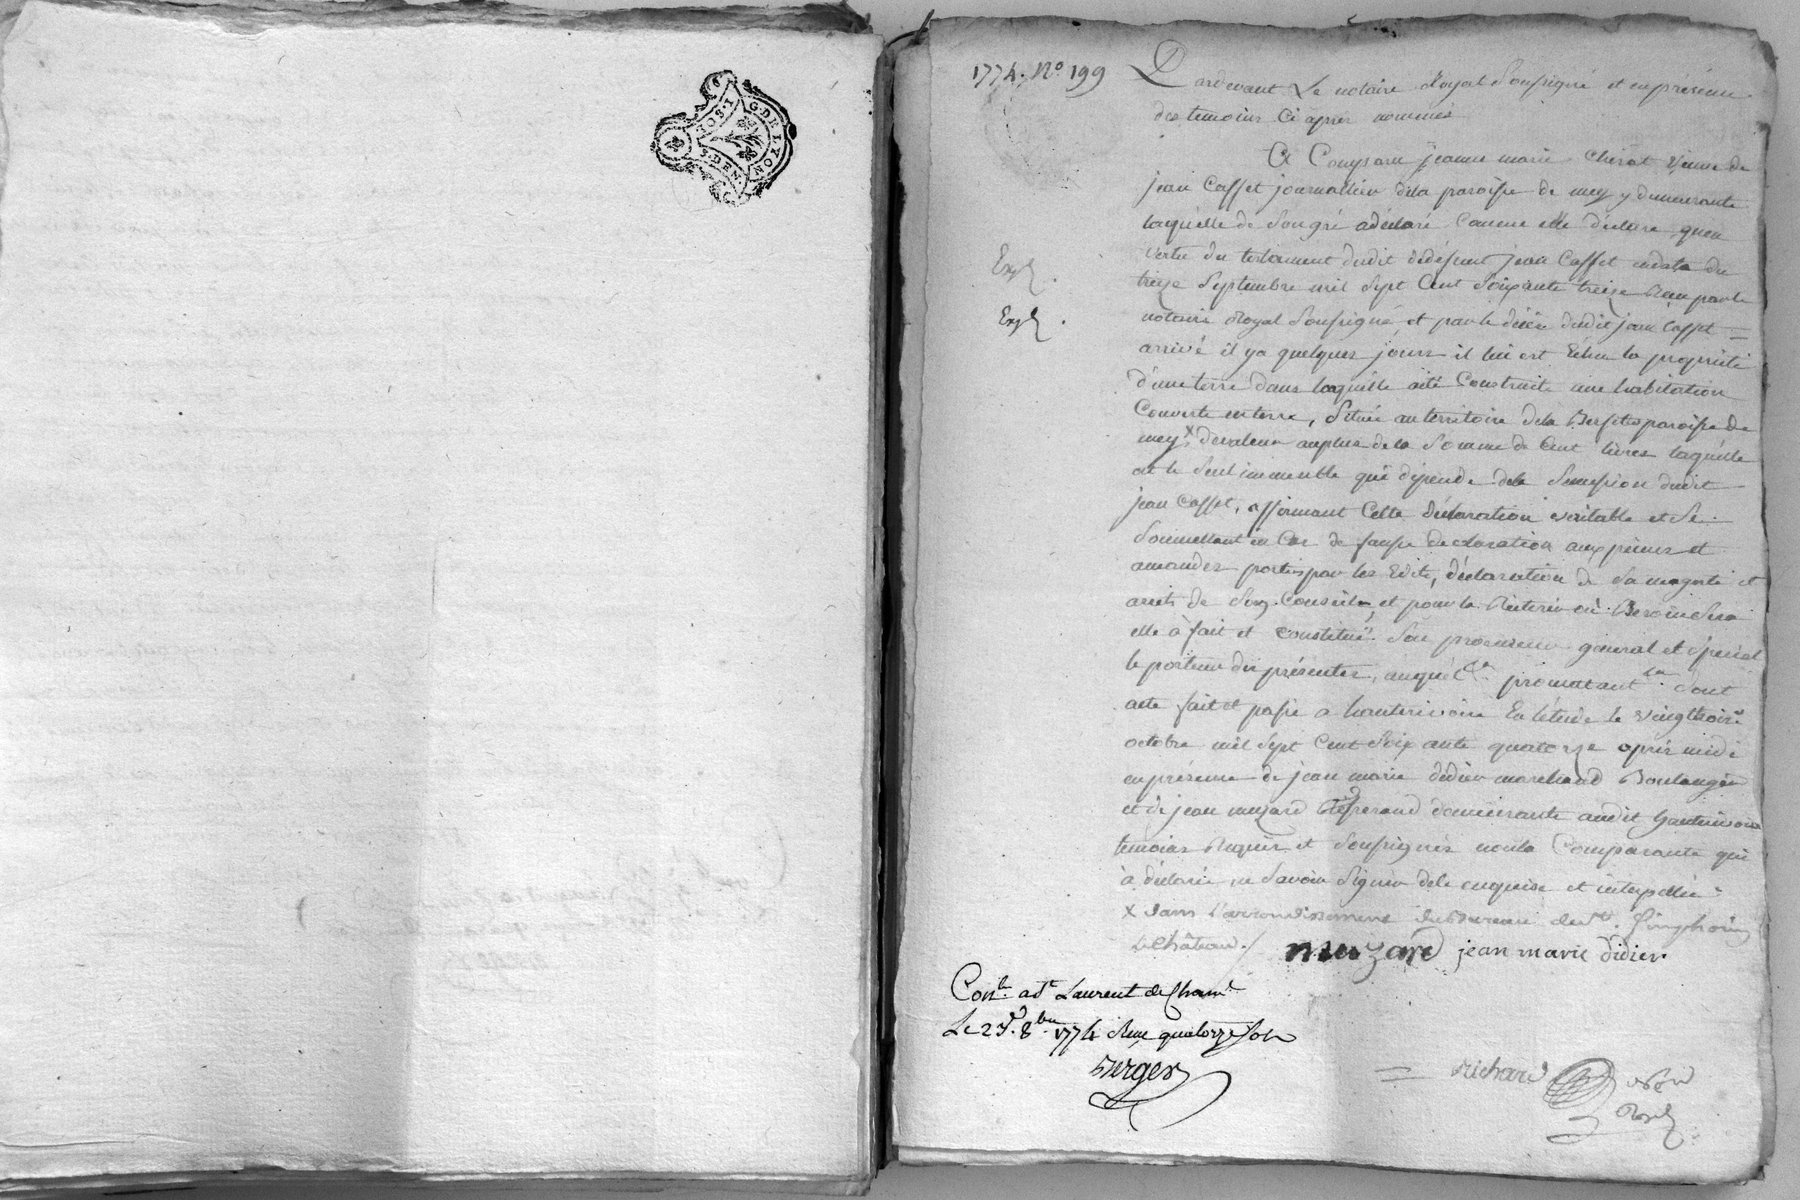 G. DE LYON
2. SOS. 1
S. DEN.
1774. No 199
Pardevant Le notaire Royal Soussigné et en présence
des temoins Ci après nommés
A Comparu jeanne marie Cherat veuve de
jean Caffet journallier dela paroisse de mey y demeurante
laquélle de Songré adéclaré Comme elle déclare quen
Vertu du testament dudit dédéfunt jean Caffet endate du
treize Septembre mil Sept Cent Soixante treize Reçu par le
notaire Royal Soussigné, et par le décès dudit jean Caffet
arrivé il ya quelques jours il lui est Echu la propriété
d'une terre dans laquélle aété Construite une habitation
Couverte en terre, Située au territoire dela paroisse de
mey x devaleur auplus de la Somme de Cent livres laquélle
est le Seul immeuble qui dépende dela Succession dudit
jean Caffet, affirmant Cette déclaration véritable et Se
Soumettant en Cas de fausse declaration aux peines et
amandes portés par les Edits, déclaration de Sa magesté et
arrets de Son Conseil, et pour la Réiterer où Besoin Sera
elle à fait et constitué Son procureur général et Spécial
le porteur des présentes, auquél promettant dont
acte fait et passé a hauterivoire En letude le vingttrois
octobre mil Sept Cent Soixante quatorze après midi
en présence de jean marie didier marchand Boulanger
et de jean muzard demeurants audit hauterivoire
temoins Requis et Soussignés nonla Comparante qui
à déclaré ne Savoir Signer dele enquise et interpellée
x dans l'arrondissement du Bureau de St. Simphorien
Le Château./ muzard jean marie didier
Conlé à St Laurent de Cham.t
Le 23. 8bre 1774 Reçu quatorze Sols
Berger
Richard
Royal
Exp
Exp